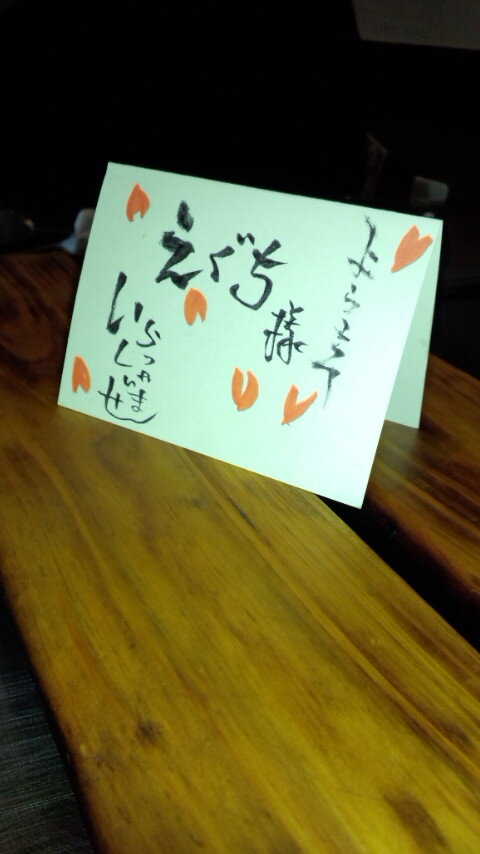 ようこそ
えぐち様
いらっしゃいませ